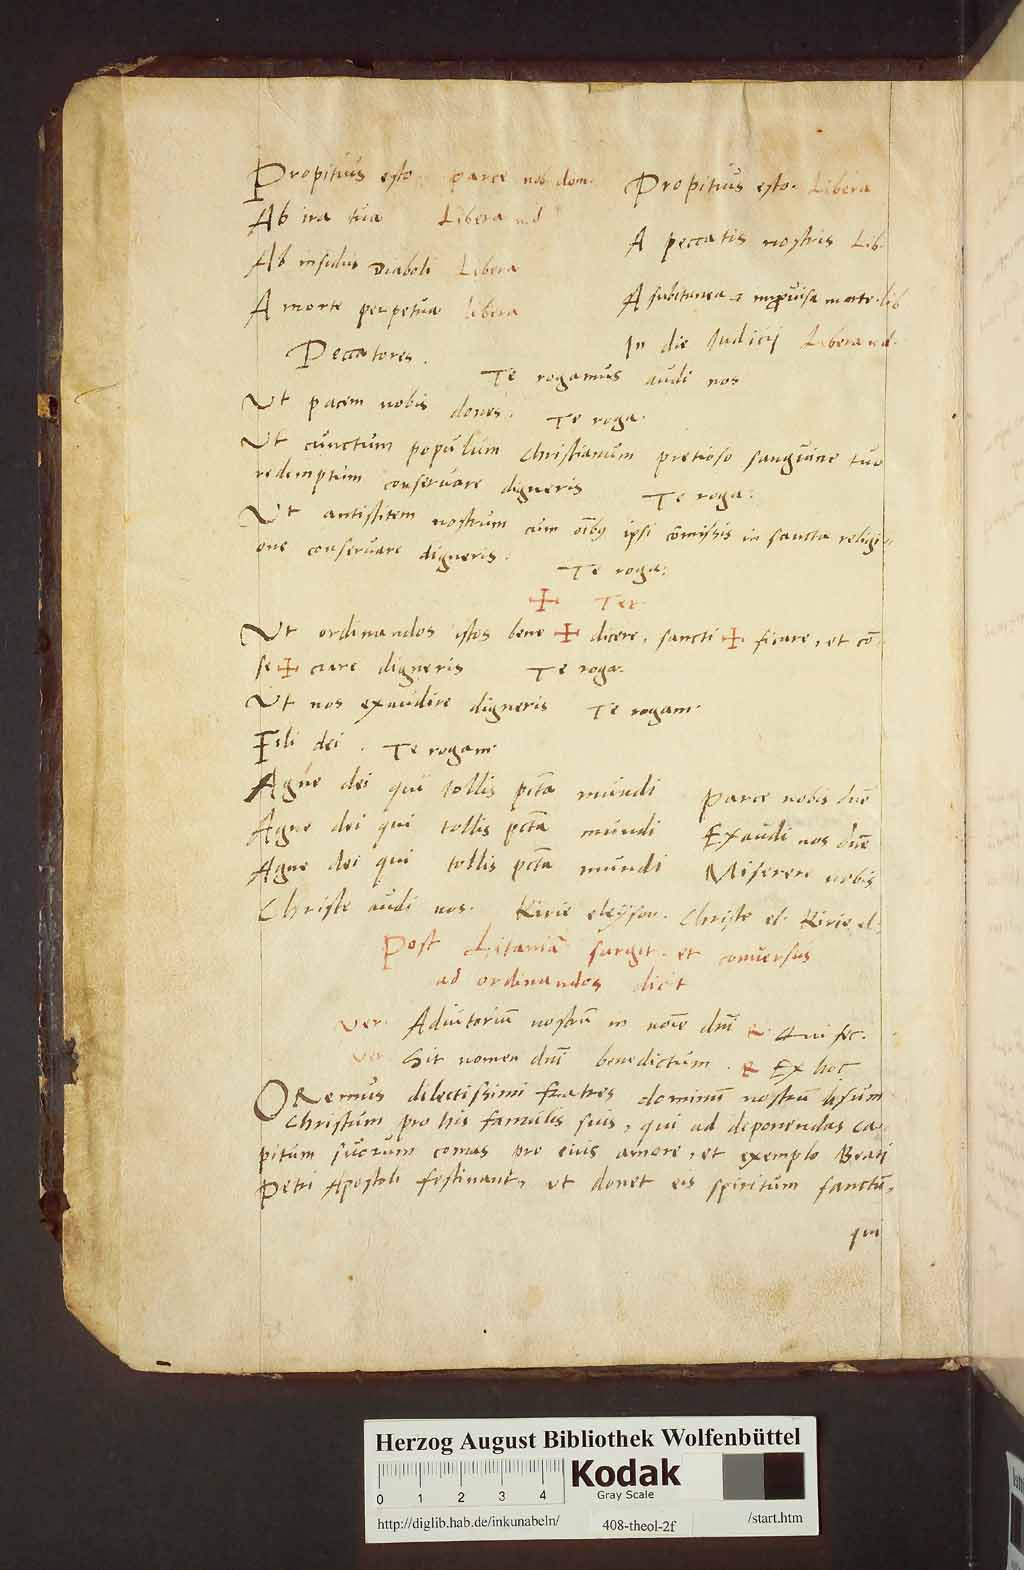 Propitius esto. parce nob dom.
Ab ira tua Libera nd
Ab insidiis Diaboli Libera
A morte perpetua libera
Propitius esto. Libera
A peccatis nostris Lib.
A subitanea et improuisa morte. lib
In die Iudicij Libera nd.
Peccatores.
Te rogamus audi nos
Ut pacem nobis dones. Te roga.
Ut cunctum populum Christianum pretioso sanguine tuo
redemptum conseruare digneris Te roga.
Ut antistitem nostrum cum oībꝯ ipsi cōmissis in sancta religi=
one conseruare digneris. Te roga:
✠ Ter
Ut ordinandos istos bene ✠ dicere, sancti ✠ ficare, et cō
se ✠ crare digneris Te roga.
Ut nos exaudire digneris Te rogam.
Fili dei. Te rogam.
Agne dei qui tollis pc̄ta mundi Parce nobis dn̄e
Agne dei qui tollis pc̄ta mundi Exaudi nos dn̄e
Agne dei qui tollis pc̄ta mundi Miserere nobis
Christe audi nos. Kirie eleÿson. Christe el. Kirie el.
Post Litaniā surgit. et conuersus
ad ordinandos dicit
Ver. Adiutoriū nostrū in noīe dn̄i ℟ Qui fec.
Ver. Sit nomen dn̄i benedictum. ℟ Ex hoc
ORemus dilectissimi fratres dominū nostrū Iesum
Christum pro his famulis suis, qui ad deponendas ca
pitum suorum comas pro eius amore, et exemplo Beati
Petri Apostoli festinant, ut donet eis spiritum sanctū,
qui
Herzog August Bibliothek Wolfenbüttel
0 1 2 3 4
Kodak
Gray Scale
http://diglib.hab.de/inkunabeln/ 408-theol-2f /start.htm